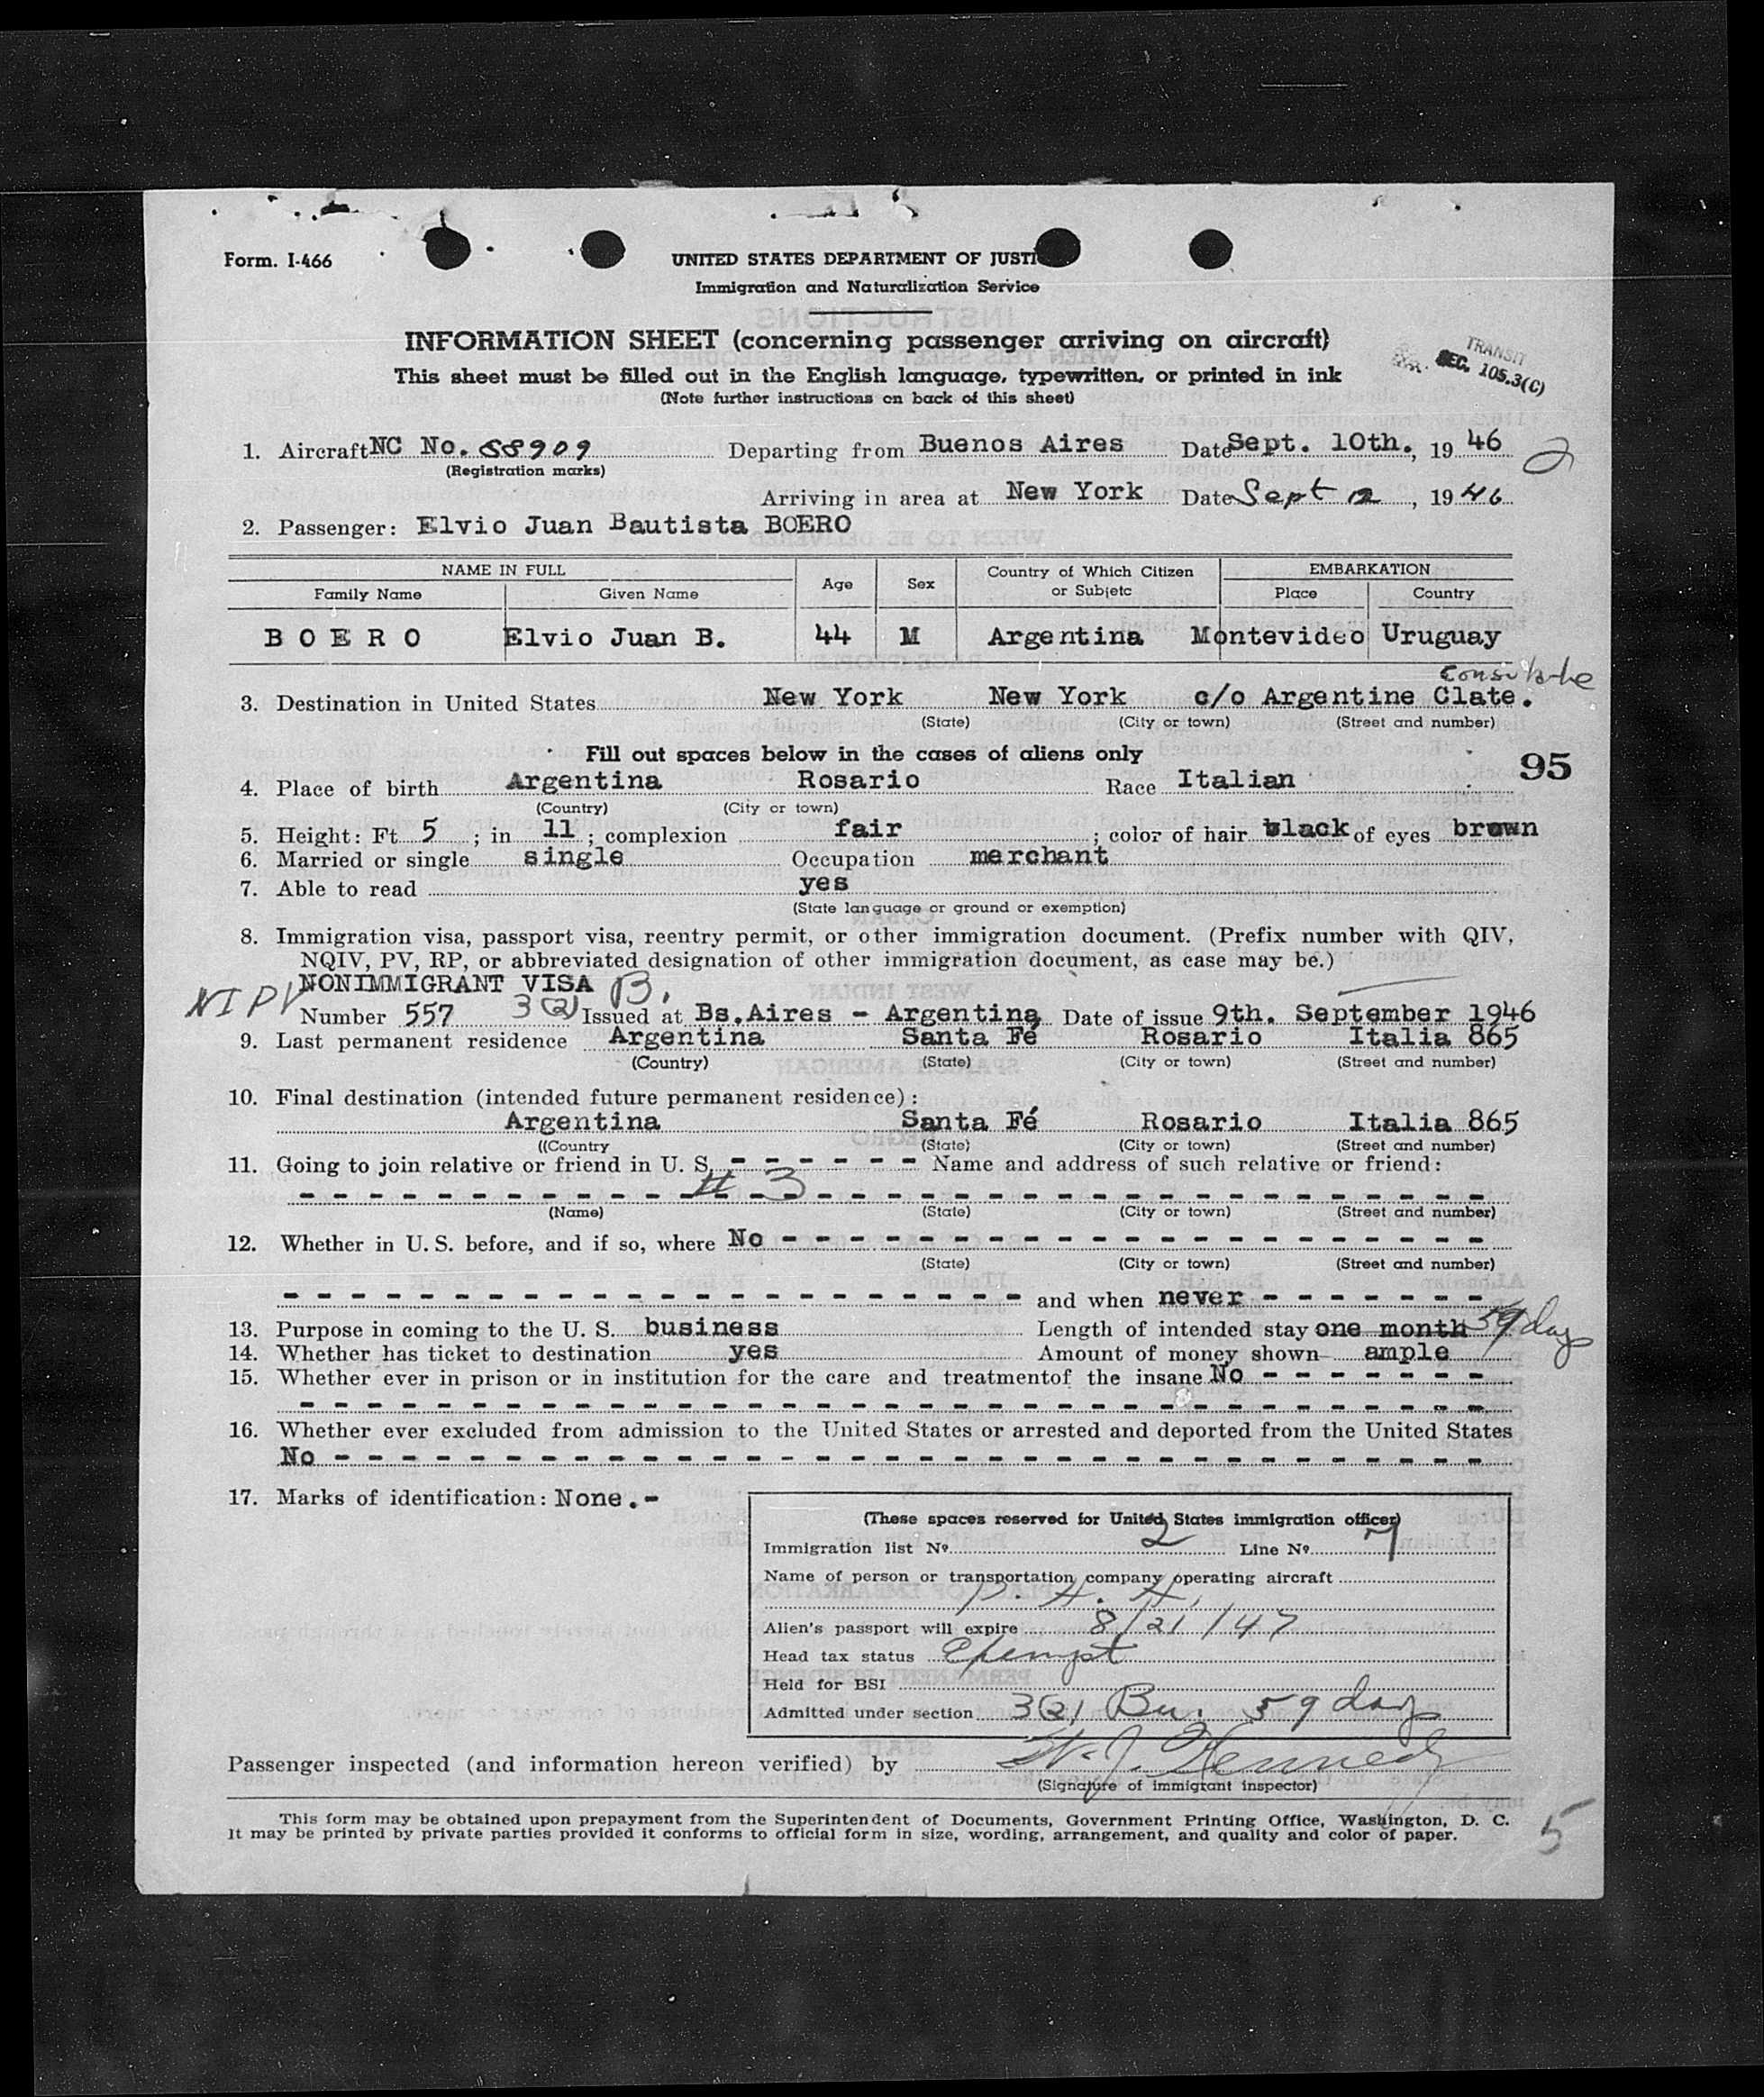 Form. I-466
UNITED STATES DEPARTMENT OF JUSTI
Immigration and Naturalization Service
INFORMATION SHEET (concerning passenger arriving on aircraft)
TRANSIT
SEC. 105.3(C)
This sheet must be filled out in the English language, typewritten, or printed in ink
(Note further instructions on back of this sheet)
1. Aircraft NC No. 88909 Departing from Buenos Aires Date Sept. 10th., 19 46 2
(Registration marks)
Arriving in area at New York Date Sept 12, 19 46
2. Passenger: Elvio Juan Bautista BOERO
NAME IN FULL Age Sex Country of Which Citizen or Subjetc EMBARKATION
Family Name Given Name Place Country
B O E R O Elvio Juan B. 44 M Argentina Montevideo Uruguay
Consulate
3. Destination in United States New York New York c/o Argentine Clate.
(State) (City or town) (Street and number)
Fill out spaces below in the cases of aliens only
95
4. Place of birth Argentina Rosario Race Italian
(Country) (City or town)
5. Height: Ft. 5 ; in 11 ; complexion fair ; color of hair black of eyes brown
6. Married or single single Occupation merchant
7. Able to read yes
(State language or ground or exemption)
8. Immigration visa, passport visa, reentry permit, or other immigration document. (Prefix number with QIV,
NQIV, PV, RP, or abbreviated designation of other immigration document, as case may be.)
NONIMMIGRANT VISA B.
NIPV Number 557 3(2) Issued at Bs.Aires - Argentina Date of issue 9th. September 1946
9. Last permanent residence Argentina Santa Fé Rosario Italia 865
(Country) (State) (City or town) (Street and number)
10. Final destination (intended future permanent residence):
Argentina Santa Fé Rosario Italia 865
((Country (State) (City or town) (Street and number)
11. Going to join relative or friend in U. S. - - - - - - Name and address of such relative or friend:
# 3
(Name) (State) (City or town) (Street and number)
12. Whether in U. S. before, and if so, where No - - - - - - - - - - - - - - - - - - - - -
(State) (City or town) (Street and number)
- - - - - - - - - - - - - - - - - - - - - - and when never - - - - - - -
13. Purpose in coming to the U. S. business Length of intended stay one month 59 days
14. Whether has ticket to destination yes Amount of money shown ample
15. Whether ever in prison or in institution for the care and treatmentof the insane No - - - - - - -
16. Whether ever excluded from admission to the United States or arrested and deported from the United States
No - - - - - - - - - - - - - - - - - - - - - - - - - - - - - - - - - -
17. Marks of identification: None.-
(These spaces reserved for United States immigration officer)
Immigration list Nº 2 Line Nº 7
Name of person or transportation company operating aircraft
P. A. A.
Alien's passport will expire 8/21/47
Head tax status Exempt
Held for BSI
Admitted under section 3(2) Bu. 59 days
Passenger inspected (and information hereon verified) by W. J. Kennedy
(Signature of immigrant inspector)
This form may be obtained upon prepayment from the Superintendent of Documents, Government Printing Office, Washington, D. C.
It may be printed by private parties provided it conforms to official form in size, wording, arrangement, and quality and color of paper.
5